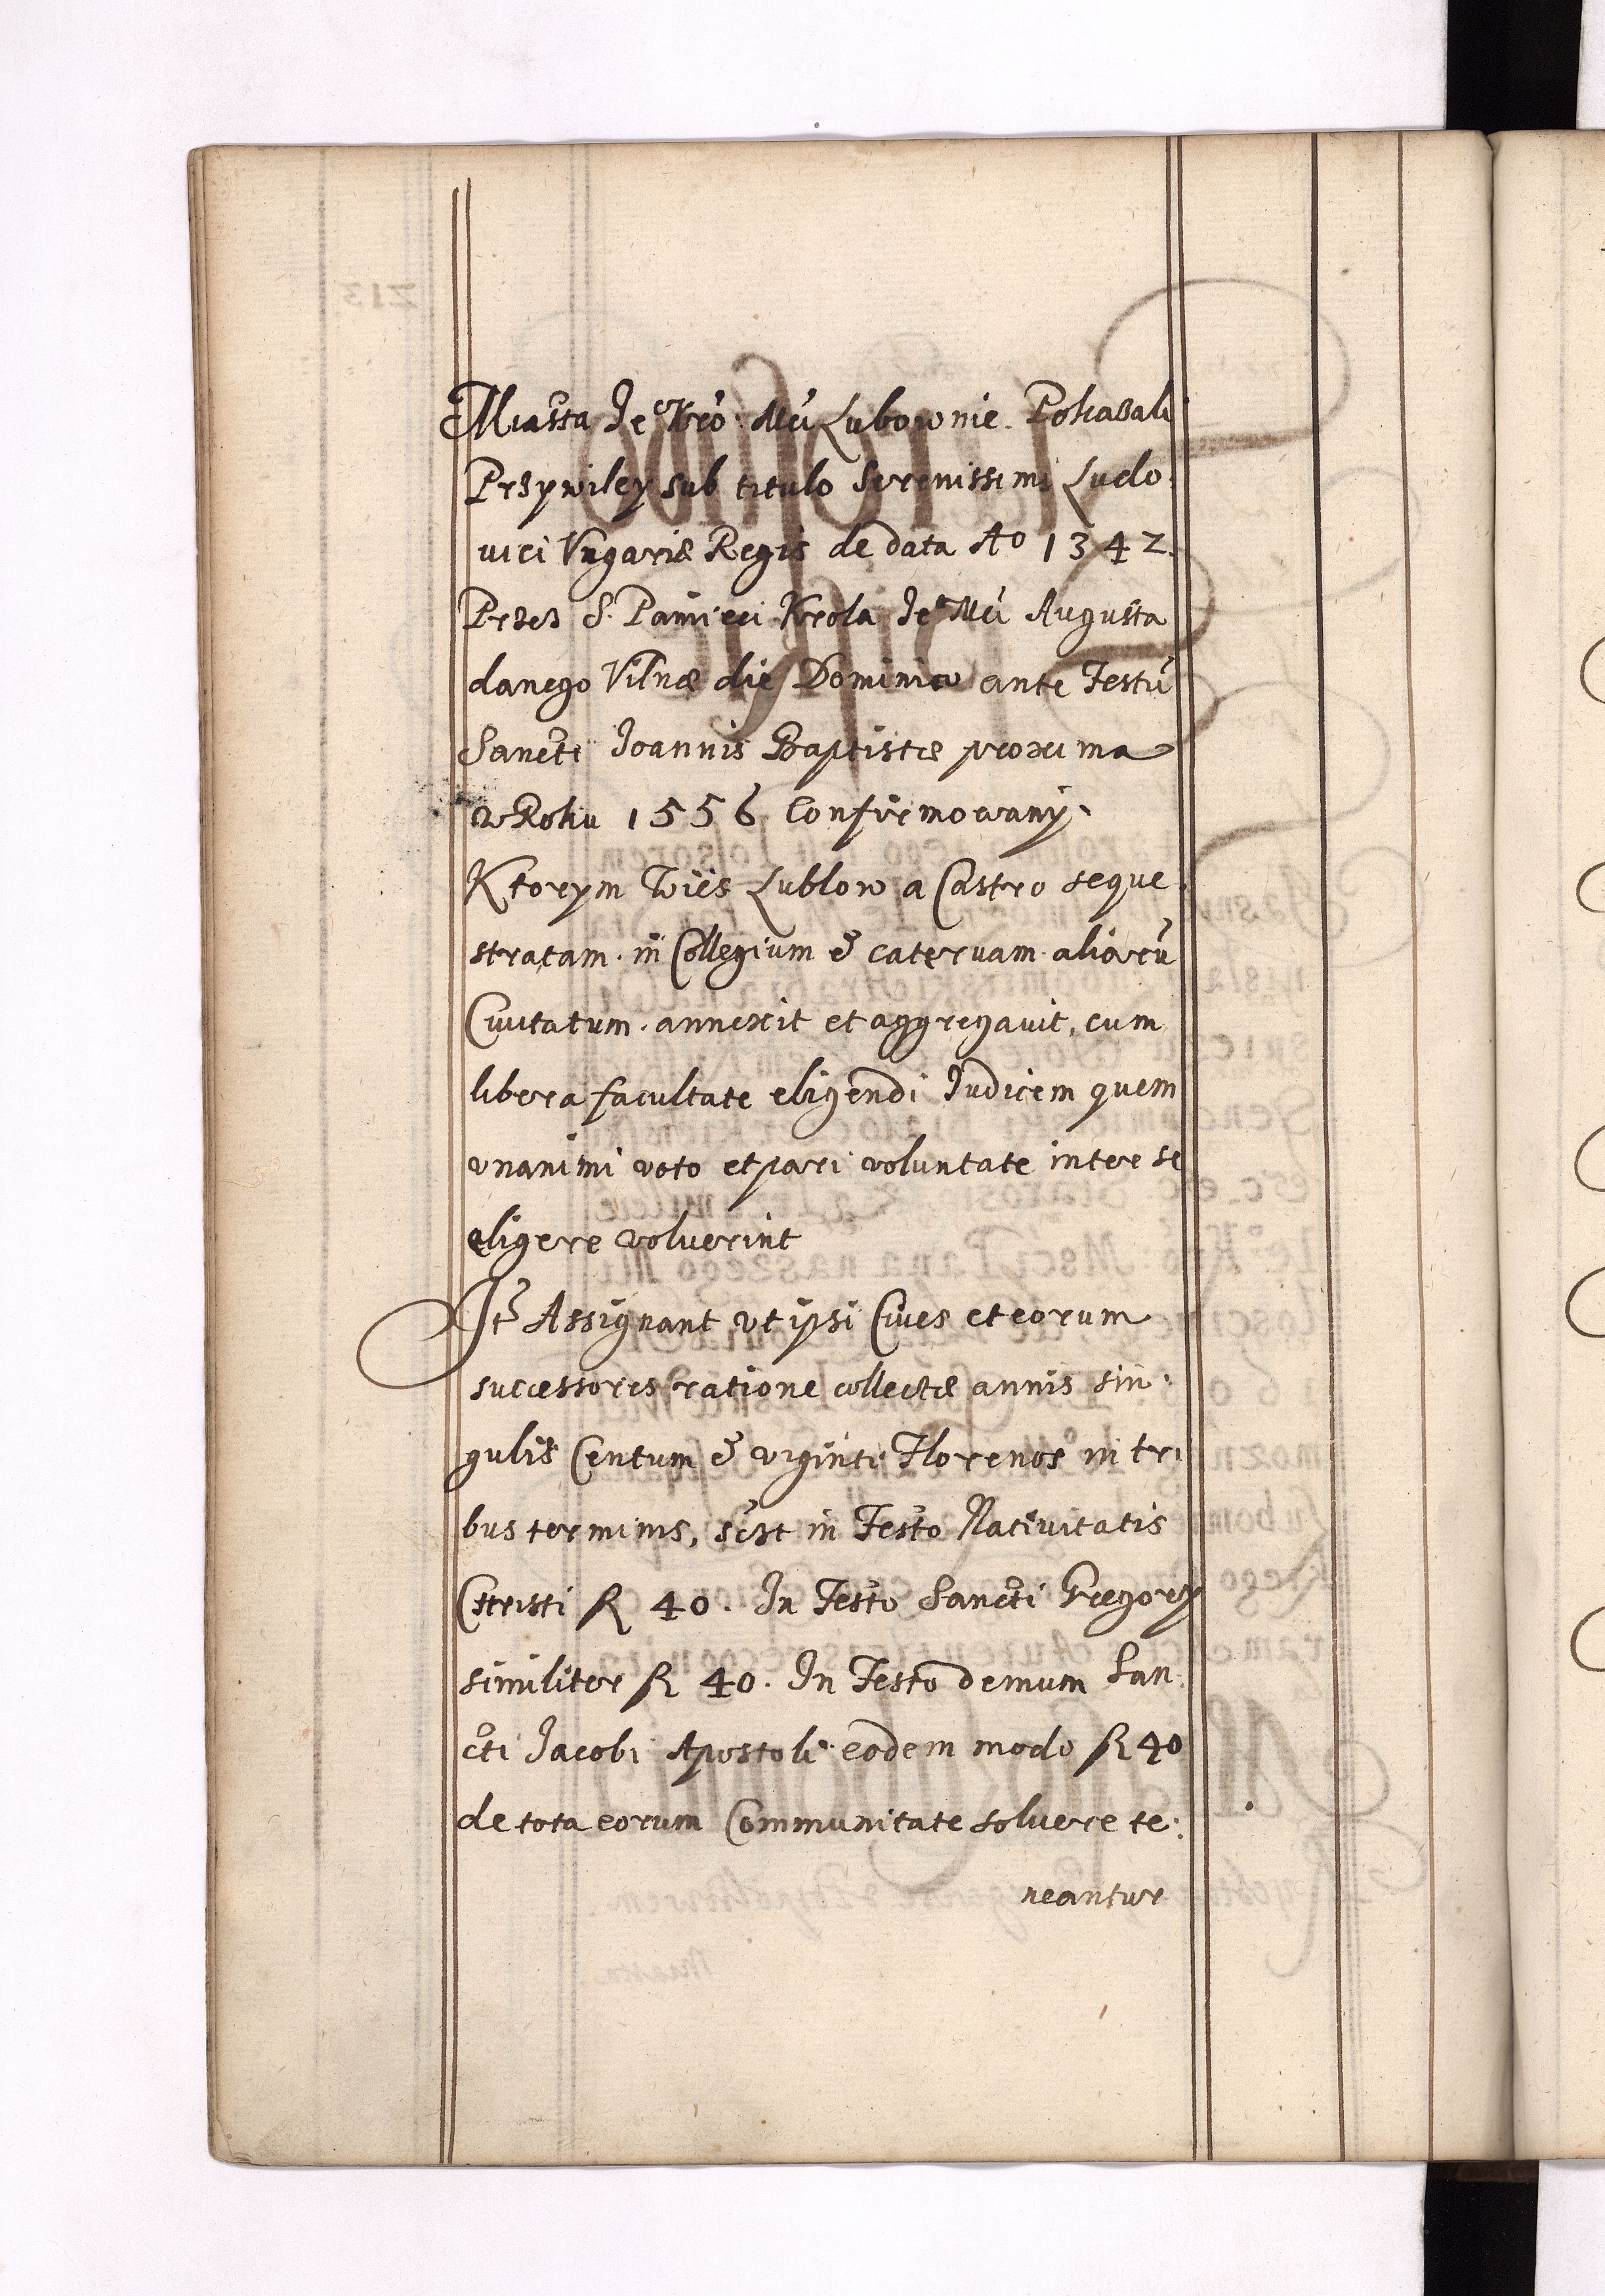 Miasta Je° Kró: Mci Lubownie. Pokazali
Przywiley sub titulo Serenissimi Ludo:
uici Vngariæ Regis de data Ao 1342.
Przez S. Pamięci Krola Je° Mci Augusta
danego Vilnæ die Dominico ante Festū
Sancti Joannis Baptistæ proxima
w Roku 1556 Confirmowany.
Ktorym Wieś Lublow a Castro seque:
stratam. in Collegium & cateruam. aliorū
Ciuitatum. annexit et aggregauit, cum
libera facultate eligendi Judicem quem
vnanimi voto et pari voluntate inter se
eligere voluerint
It͠ Assignant vt ipsi Ciues et eorum
successores ratione collectæ annis sin:
gulis Centum & viginti Florenos in tri
bus terminis, scīt in Festo Natiuitatis
Christi fl 40. In Festo Sancti Gregory
similiter fl 40. In Festo demum San:
cti Jacobi Apostoli eodem modo fl 40
de tota eorum Communitate soluere te:
neantur